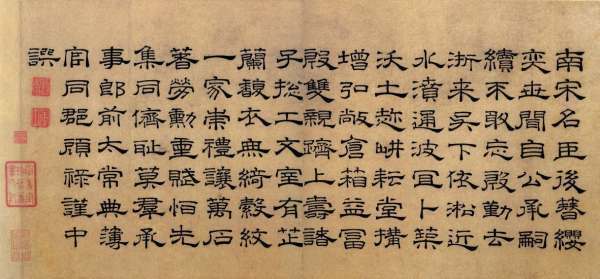 南宋名臣後簪纓
奕世聞自公承嗣
續不敢忘殷勤去
浙来吴下依淞近
水濆通波宜卜築
沃土趂畊耘堂搆
增弘敞倉箱益冨
殷雙親躋上壽諸
子捴工文室有芷
蘭馥衣無綺縠紋
一家崇禮讓萬石
著勞勳重賦恒先
集同儕耻莫羣承
事郎前太常典簿
官同郡顧祿謹中
譔